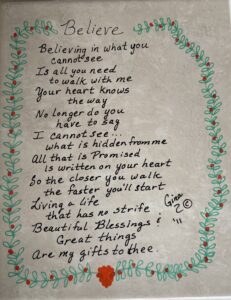 Believe
Believing in what you
cannot see
Is all you need
to walk with me
Your heart knows
the way
No longer do you
have to say
I cannot see...
what is hidden from me
All that is Promised
is written on your heart
So the closer you walk
the faster you'll start
Living a Life
that has no strife
Beautiful Blessings &
Great things
Are my gifts to thee
Gina
©
'11